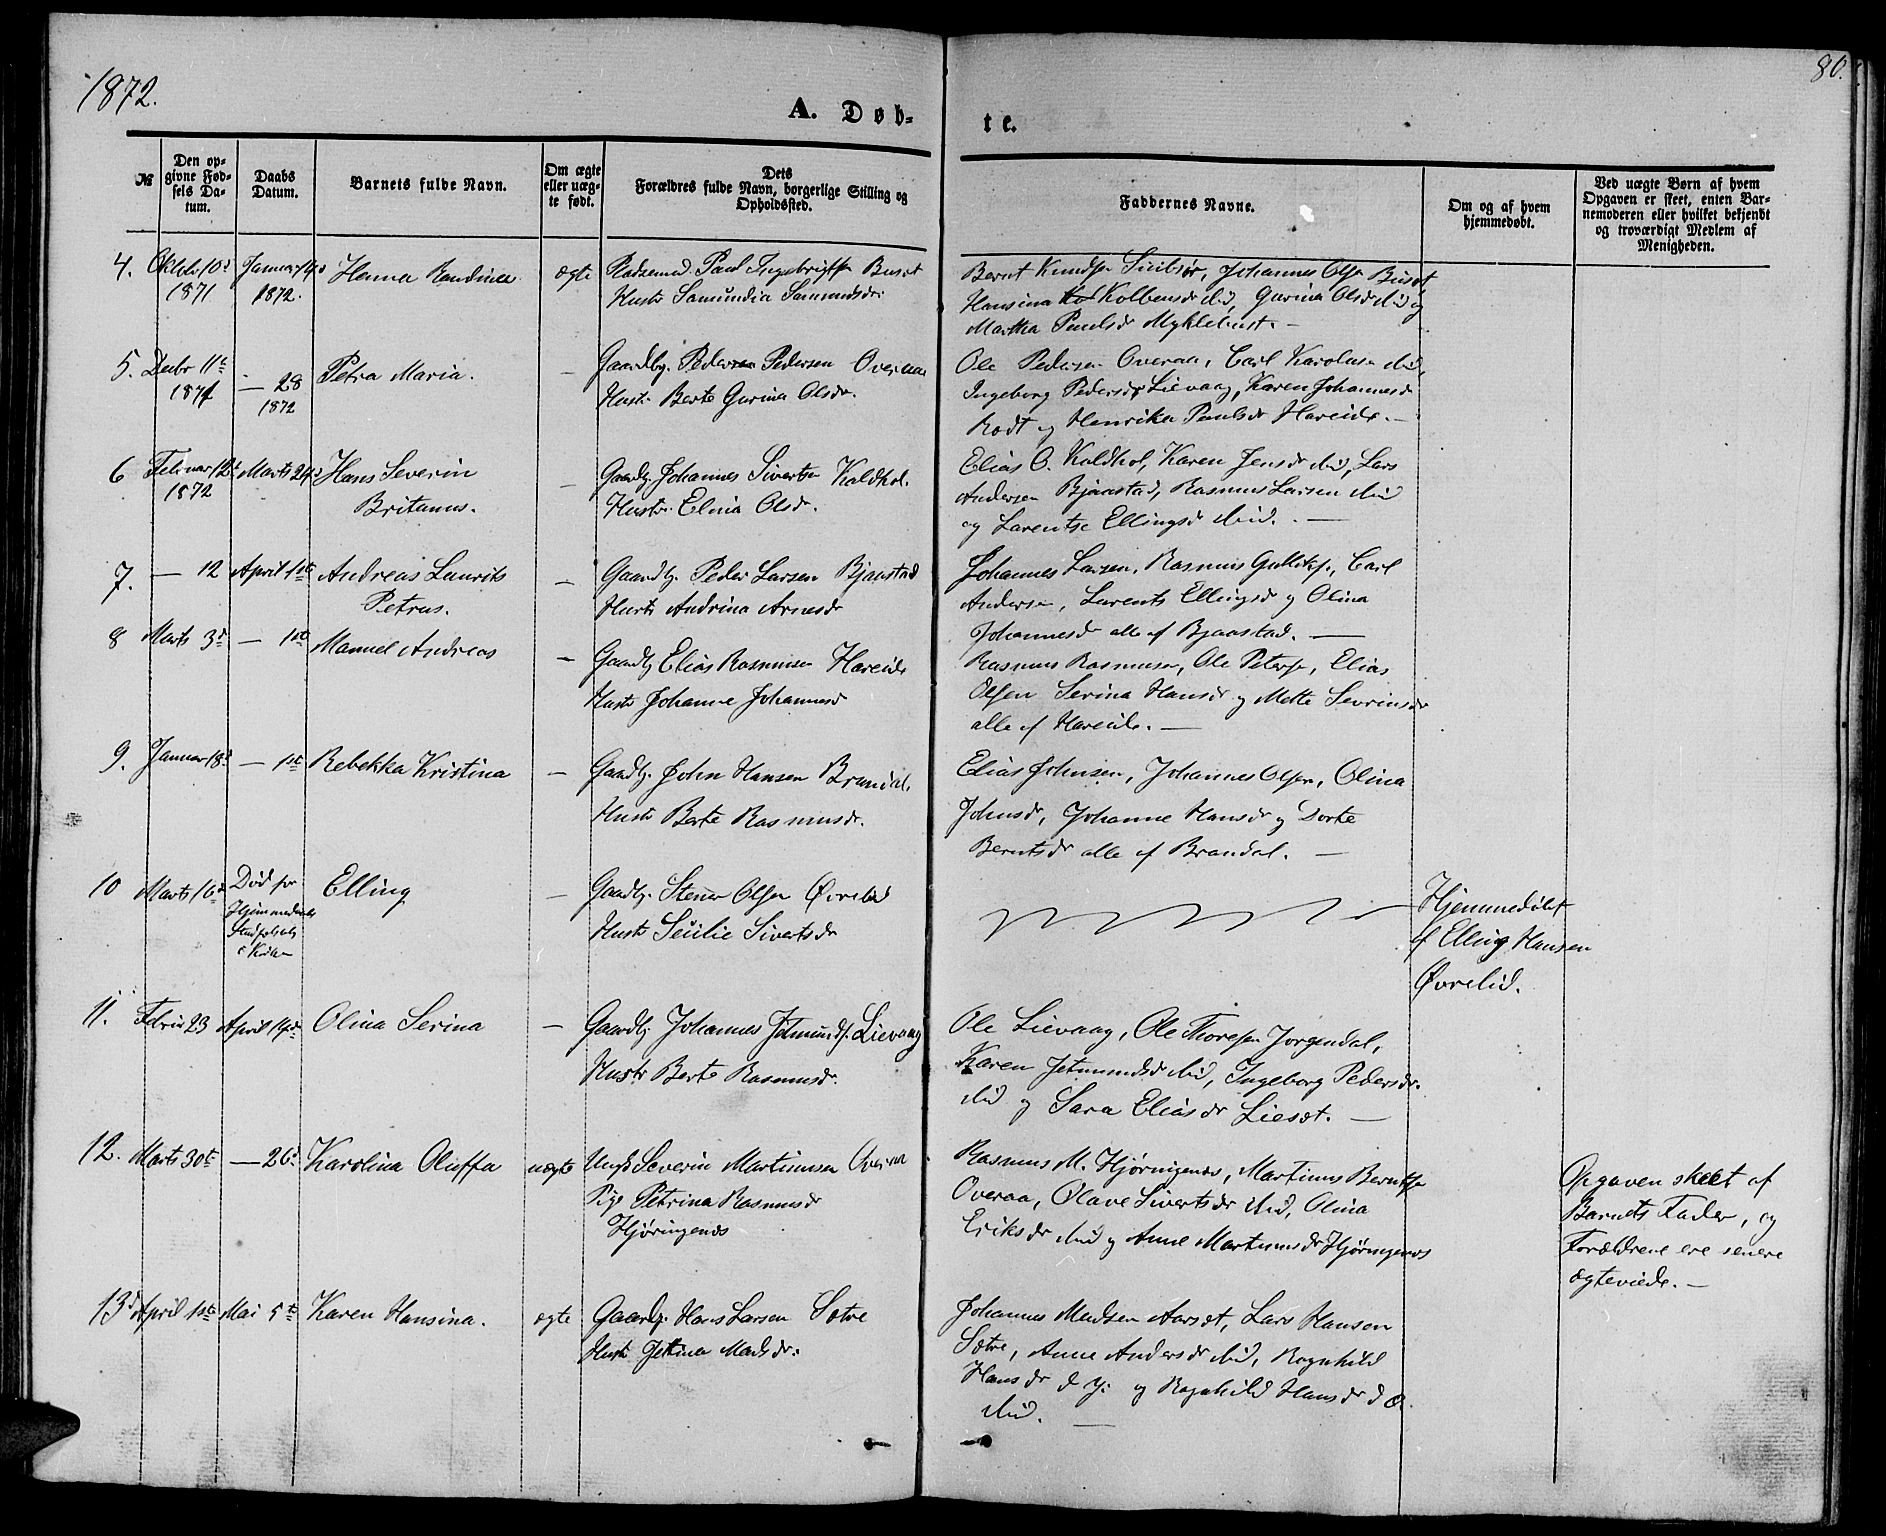 1872.
80.
A. Døb-
te.
№
Den opgivne Fødsels Datum.
Daabs Datum.
Barnets fulde Navn.
Om ægte eller uægte født.
Dets Forældres fulde Navn, borgerlige Stilling og Opholdssted.
Faddernes Navne.
Om og af hvem hjemmedøbt.
Ved uægte Børn af hvem Opgaven er skeet, enten Barnemoderen eller hvilket bekjendt og troværdigt Medlem af Menigheden.
4.
1871
1872.
Hanna Randina
ægte
Paul
Hustr Samundia Samundsdr.
Bernt Knudsn Johannes Olsn
Hansina Kolbensdr ibid, Gurina Olsdr ibid og
Martha Paulsdr Myklebust. —
5.
Decbr 11te
1871
— 28
1872
Petra Maria.
—
Gaardbr. Peder Pedersen Overaa
Hustr. Berte Gurina Olsdr.
Ole Pedersen Overaa, Carl Karolusn ibid,
Ingeborg Pedersdr Lievaag, Karen Johannesdr
og Henrika Paulsdr Hareide. —
6
Februar 12te
1872
Marts 24de
Hans Severin
Britanus.
—
Gaardbr. Johannes Sivertsn Kaldhol.
Hustr. Elnia Olsdr.
Elias O. Kaldhol, Karen Jensdr ibid, Lars
Andersen Bjaastad, Rasmus Larsen ibid
og Larentse Ellingsdr ibid. —
7.
— 12
April 1ste
Andreas Laurits
Petrus.
—
Gaardbr. Peder Larsen Bjaastad
Hustr Andrina Arnesdr
Johannes Larsen, Rasmus Carl
Andersen, Larents Ellingsdr og Olina
Johannesdr alle af Bjaastad. —
8
Marts 3d
— 1ste
Manuel Andreas
—
Gaardbr Elias Rasmusen Hareide
Hustr Johanne Johannesdr
Rasmus Rasmusen, Ole Petersn, Elias
Olsen Serina Hansdr og Mette Sevrinsdr
alle af Hareide. —
9.
Januar 18d
— 1ste
Rebekka Kristina
—
Gaardbr. John Hansen Brandal.
Hustr Berte Rasmusdr.
Elias Johnsen, Johannes Olsen, Olina
Johnsdr, Johanne Hansdr og Dorte
Berntsdr alle af Brandal. —
10
Marts 16d
Død før
i Kirken
Elling
—
Gaardbr. Stener Olsen Øvrelid
Hustr Secilie Sivertsdr
Hjemmedøbt
af Elling Hansen
Øvrelid.
11.
Febru 23
April 14de
Olina Serina
—
Gaardbr Johannes Jetmundsn. Lievaag
Hustr Berte Rasmusdr.
Ole Lievaag, Ole Thoresen Jorgendal,
Karen Jetmundsdr ibid, Ingeborg Pedersdr.
ibid og Sara Eliasdr Liesæt. —
12.
Marts 30te
— 26d
Karolina Oluffa
uægte
Ungk Severin Martinusen Overaa
Pige Petrina Rasmusdr
Hjøringenæs
Rasmus M. Hjøringenæs, Martinus Berntsn
Overaa, Olave Sivertsdr ibid, Olina
Eriksdr ibid og Anne Martinusdr Hjøringenæs
Opgaven skeet af
Barnets Fader, og
Forældrene ere senere
ægteviede. —
13d
April 1ste
Mai 5te
Karen Hansina.
ægte
Gaardbr. Hans Larsen Sætre
Hustr Jetina Madsdr.
Johannes Madsen Aarsæt, Lars Hansen
Sætre, Anne Andersdr ibid, Ragnhild
Hansdr d. y. og Ragnhild Hansdr d. Æ.
ibid. —